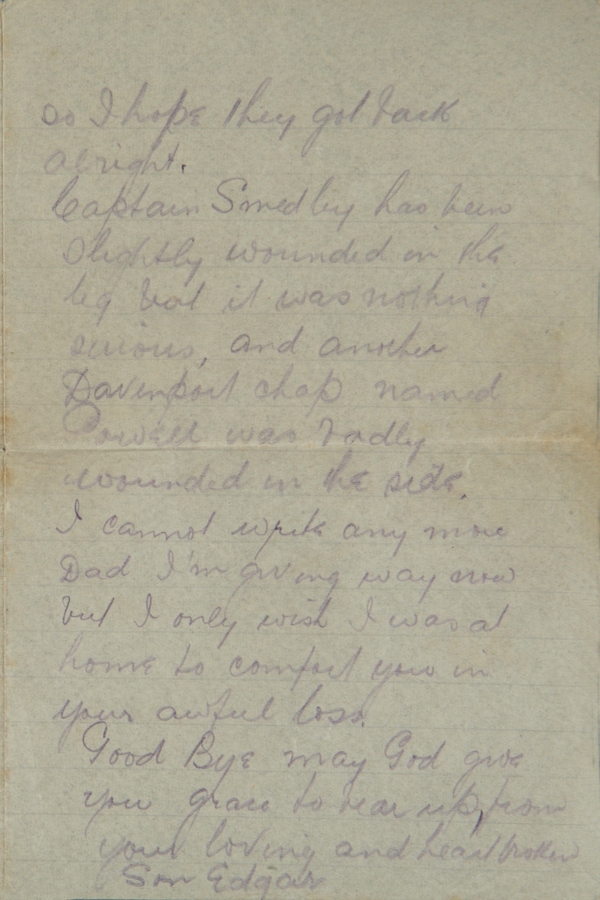 so I hope they got back
alright.
Captain Smedley has been
slightly wounded in the
leg but it was nothing
serious, and another
Davenport chap named
Powell was badly
wounded in the side.
I cannot write any more
Dad I'm giving way now
but I only wish I was at
home to comfort you in
your awful loss.
Good Bye may God give
you grace to bear up, from
your loving and heartbroken
Son Edgar